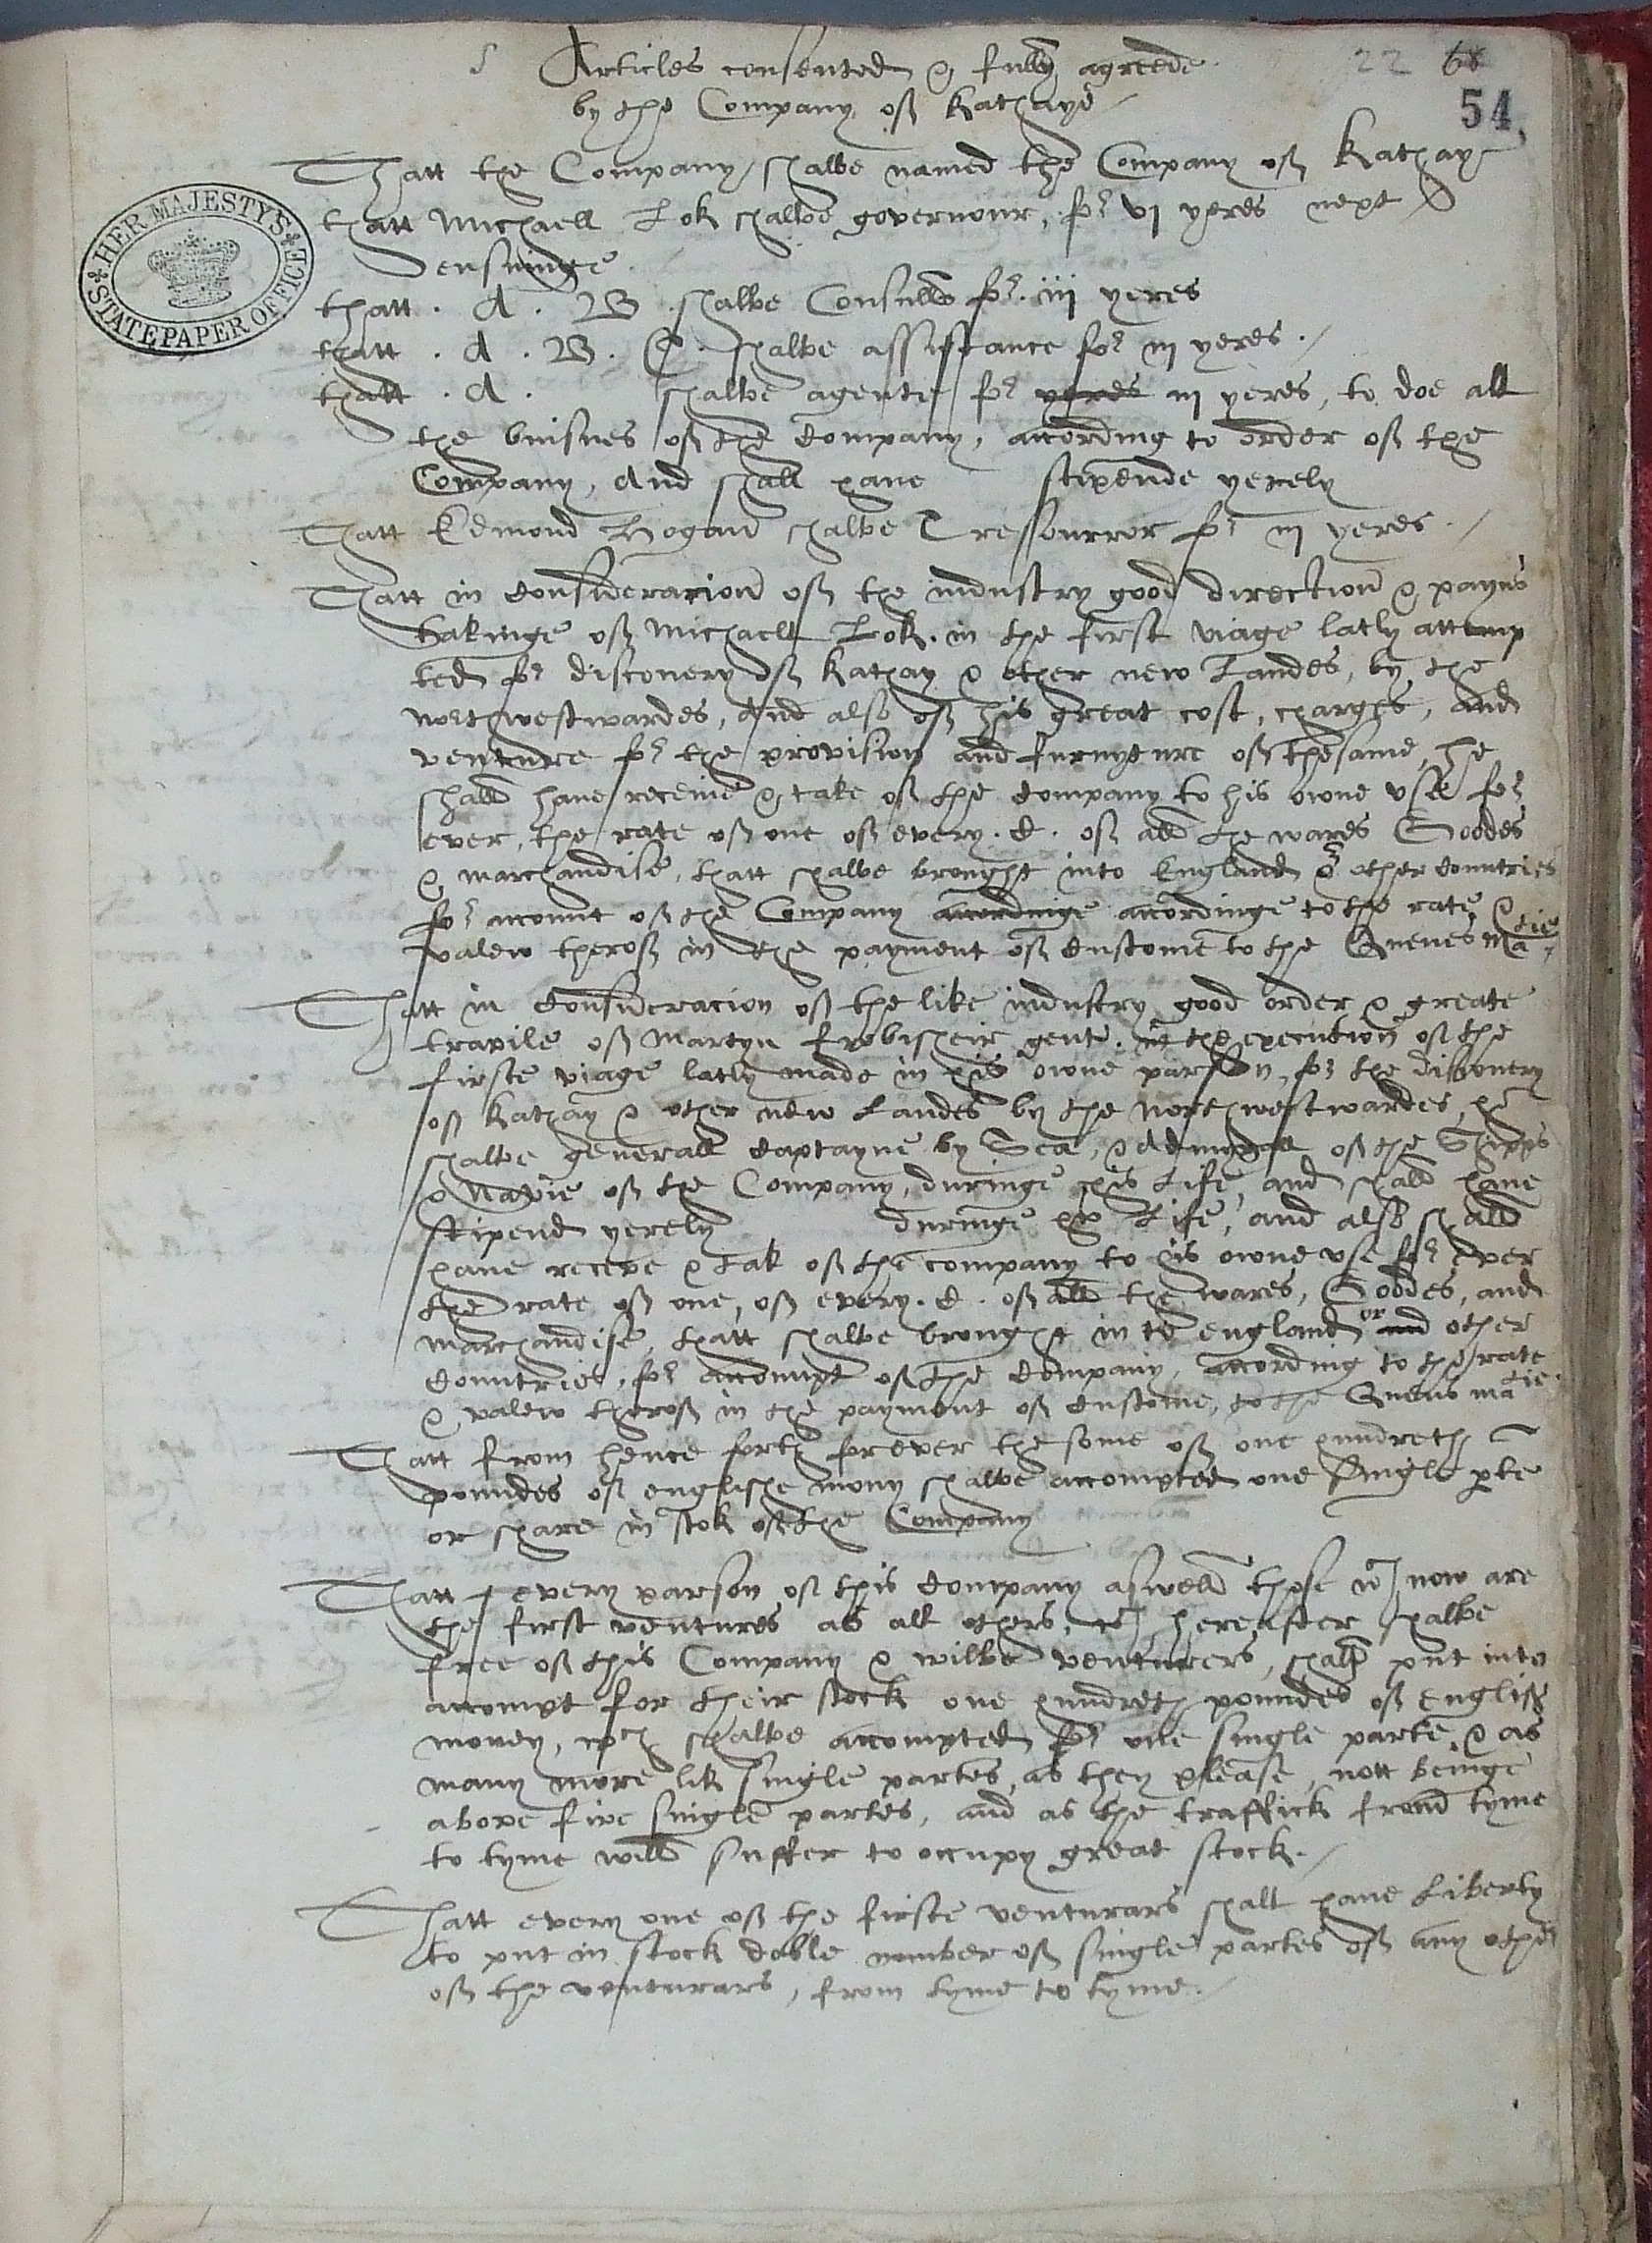 Articles consented & fully agreede
22 68
by the Company of Kathaye
54
HER MAJESTY'S STATE PAPER OFFICE
Thatt the Company shalbe named the Company of Kathay
thatt Michaell Lok shalbe governour, for vj yeres next
ensuinge
thatt . A . B . shalbe Consulls for . iij yeres
thatt . A . B . C . shalbe assistance for iij yeres .
thatt . A . shalbe agente for yeres iij yeres, to doe all
the buisnes of the Company, according to order of the
Company, And shall have stipende yerely
Thatt Edmond Hogan shalbe Tressourror for iij yeres .
Thatt in Consideracion of the industry good direction & payns
takinge of Michaell Lok . in the first viage latly attemp
ted for discovery of Kathay & other new Landes, by the
northwestwardes, And also of his great cost, charges, and
venture for the provision and furnyture of the same, he
shall have receive & take of the Company to his owne use for
ever, the rate of one of every . C . of all the wares Goodes
& marchandise, thatt shalbe brought into England & other Countries
for account of the Company accordinge accordinge to the rate &
valew therof in the payment of Custome to the Quenes Matie
Thatt in Consideracion of the like industry good order & greate
travile of Martyn Frobisheir gent . in the execution of the
firste viage latly made in his owne parson, for the discovery
of Kathay & other new Landes by the northwestwardes, he
shalbe generall Captayne by Sea, & Admyrall of the Shipps
& Navie of the Company, duringe his Life, and shall have
stipend yerely duringe his Life, and also shall
have receve & tak of the company to his owne use for ever
the rate of one, of every . C . of all the wares, Goodes, and
marchandise, thatt shalbe brought in to england or and other
Countries, for accompt of the Company, according to the rate
& valew therof in the payment of Custome, to the Quens Matie
Thatt from hence forth for ever the some of one hundreth
poundes of englishe mony shalbe accompted one single parte
or share in stok of the Company
Thatt every parson of this Company aswell those wch now are
the first ventures as all others, wch hereafter shalbe
free of this Company & wilbe venturers, shall put into
accompt for their stock one hundreth poundes of english
money, wch shalbe accompted for one single parte, & as
many more lik single partes, as they please, nott beinge
above five single partes, and as the traffick from tyme
to tyme will suffer to occupy great stock .
Thatt every one of the firste venturars shall have Liberty
to put in stock doble number of single partes of any other
of the venturars, from tyme to tyme .